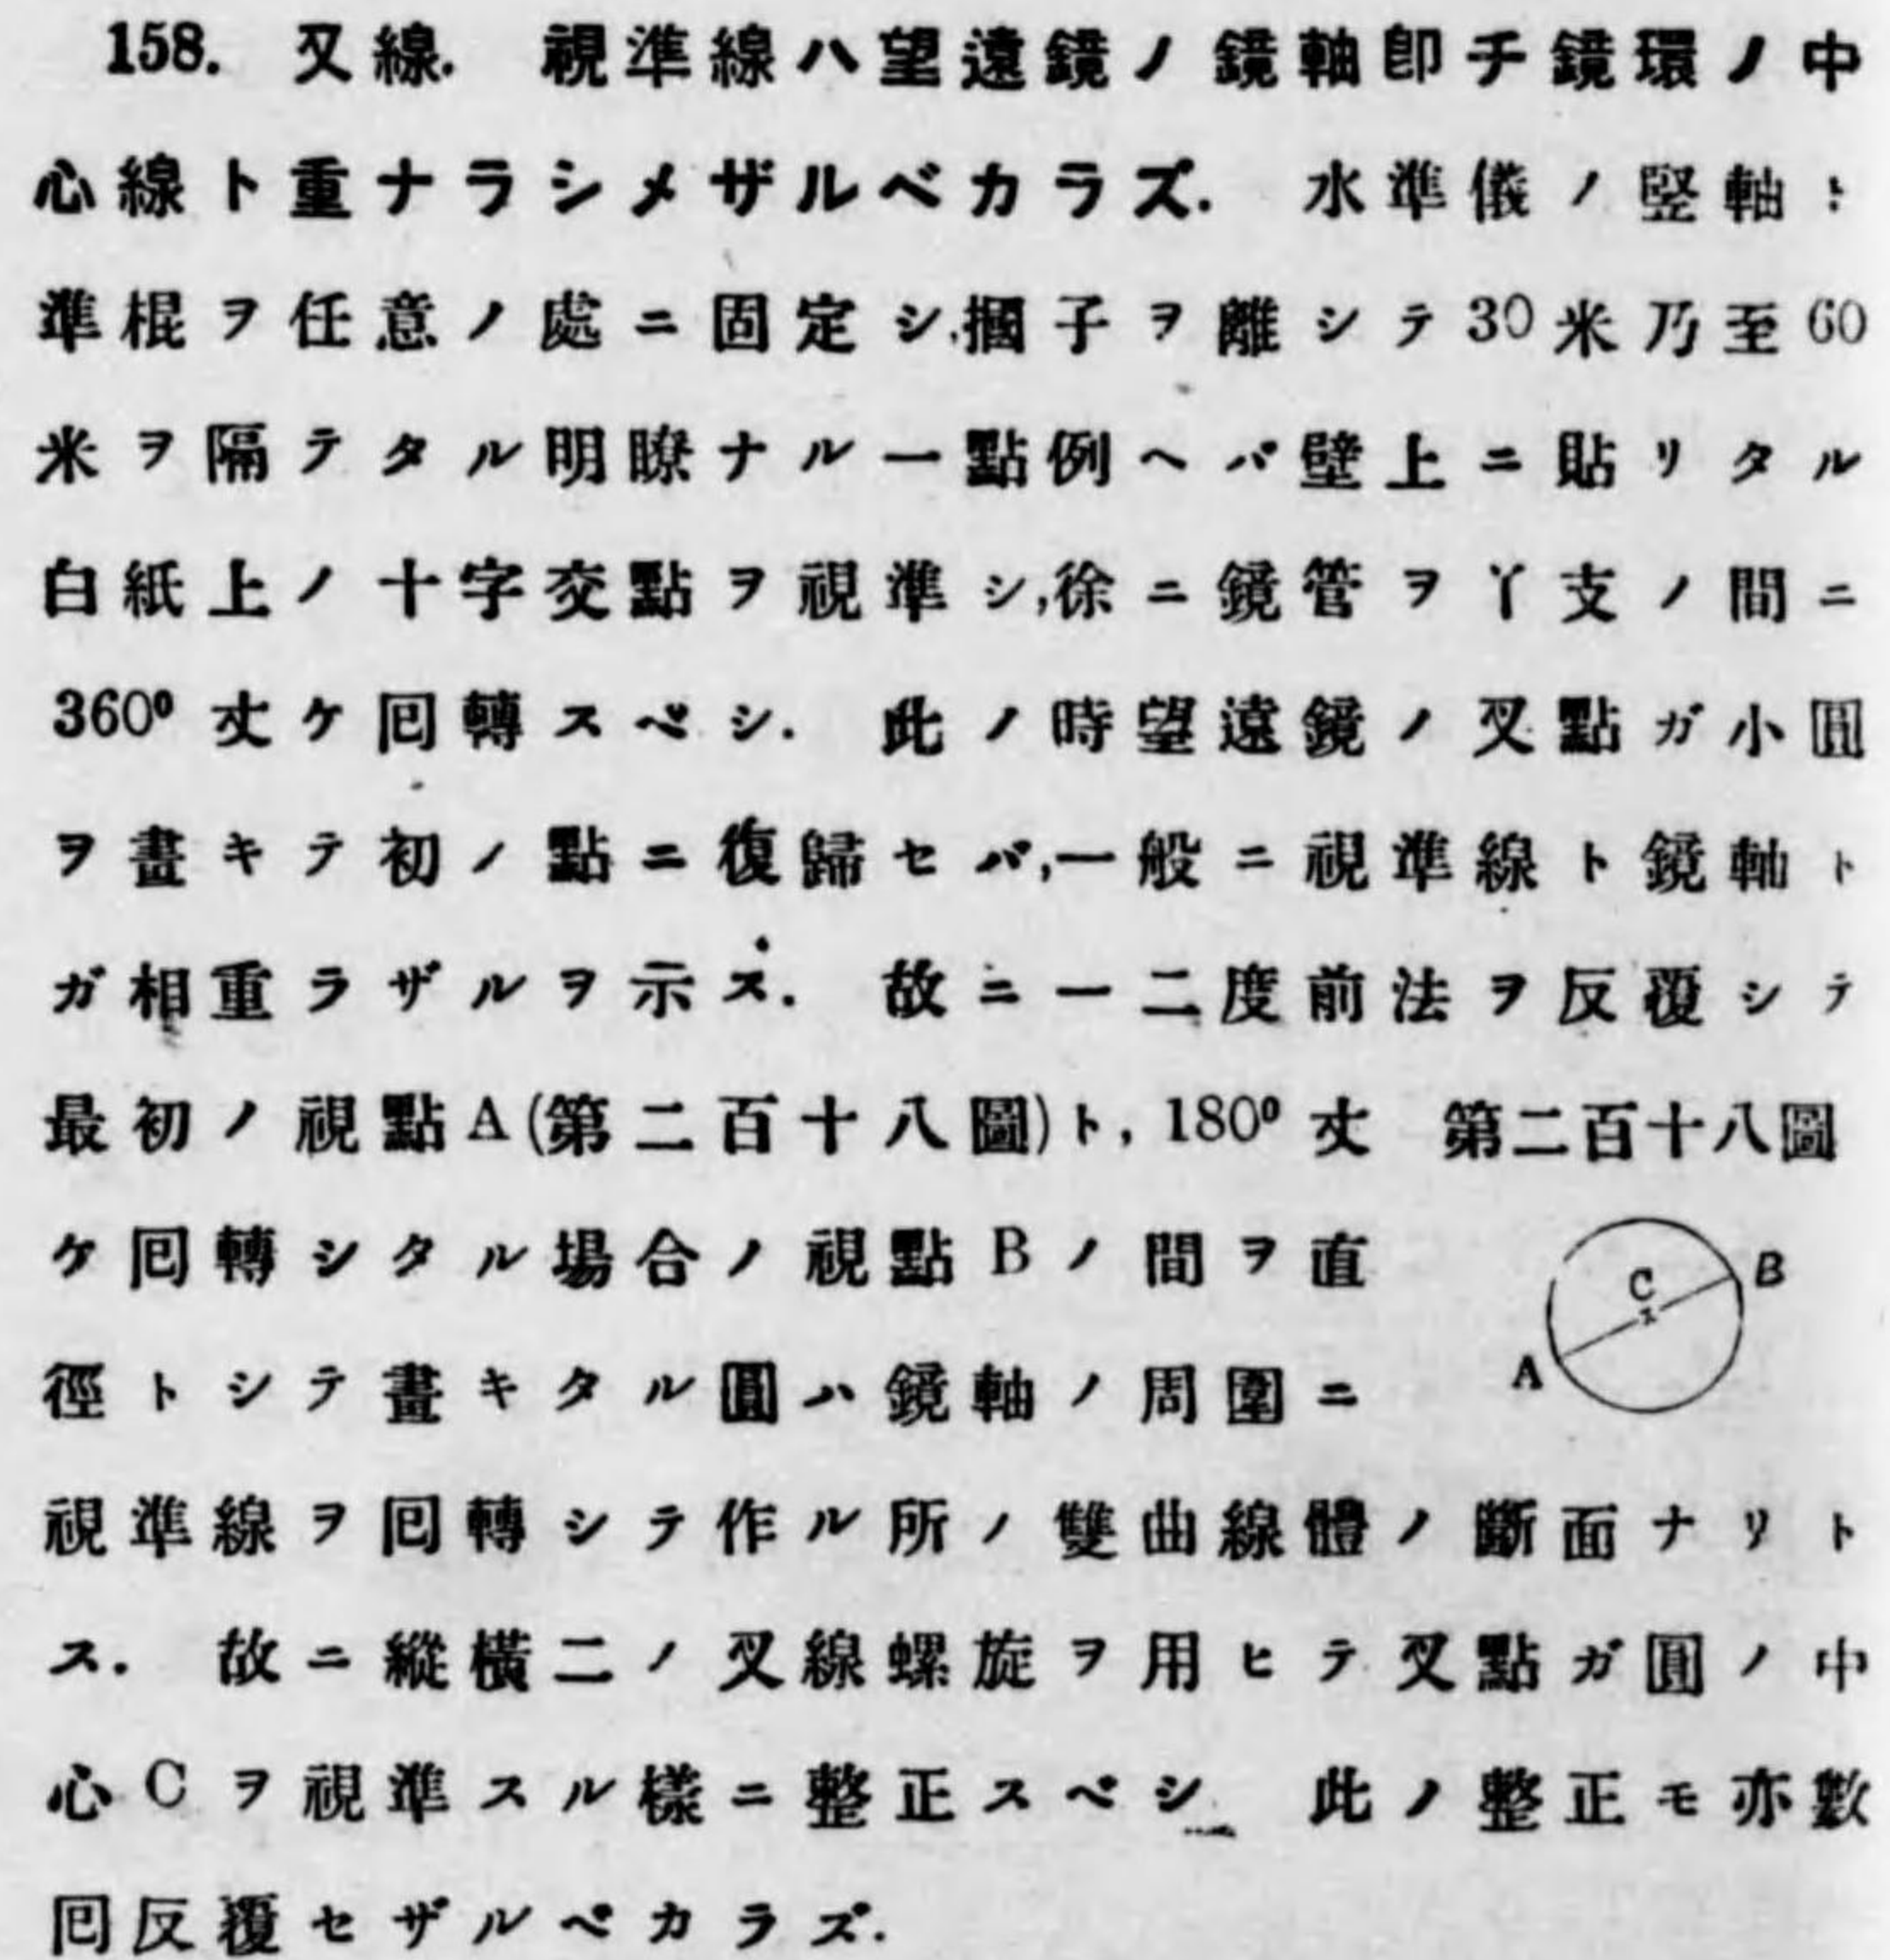 158. 叉線. 視準線ハ望遠鏡ノ鏡軸卽チ鏡環ノ中
心線ト重ナラシメザルベカラズ. 水準儀ノ竪軸ト
準棍ヲ任意ノ處ニ固定シ,摑子ヲ離シテ30米乃至60
米ヲ隔テタル明瞭ナル一點例ヘバ壁上ニ貼リタル
白紙上ノ十字交點ヲ視準シ,徐ニ鏡管ヲ丫支ノ間ニ
360⁰丈ケ囘轉スベシ. 此ノ時望遠鏡ノ叉點ガ小圓
ヲ畫キテ初ノ點ニ復歸セバ,一般ニ視準線ト鏡軸ト
ガ相重ラザルヲ示ス. 故ニ一二度前法ヲ反覆シテ
最初ノ視點A(第二百十八圖)ト, 180⁰丈
ケ囘轉シタル場合ノ視點Bノ間ヲ直
徑トシテ畫キタル圓ハ鏡軸ノ周圍ニ
第二百十八圖
C
B
A
視準線ヲ囘轉シテ作ル所ノ雙曲線體ノ斷面ナリト
ス. 故ニ縱橫二ノ叉線螺旋ヲ用ヒテ叉點ガ圓ノ中
心Cヲ視準スル樣ニ整正スベシ 此ノ整正モ亦數
囘反覆セザルベカラズ.